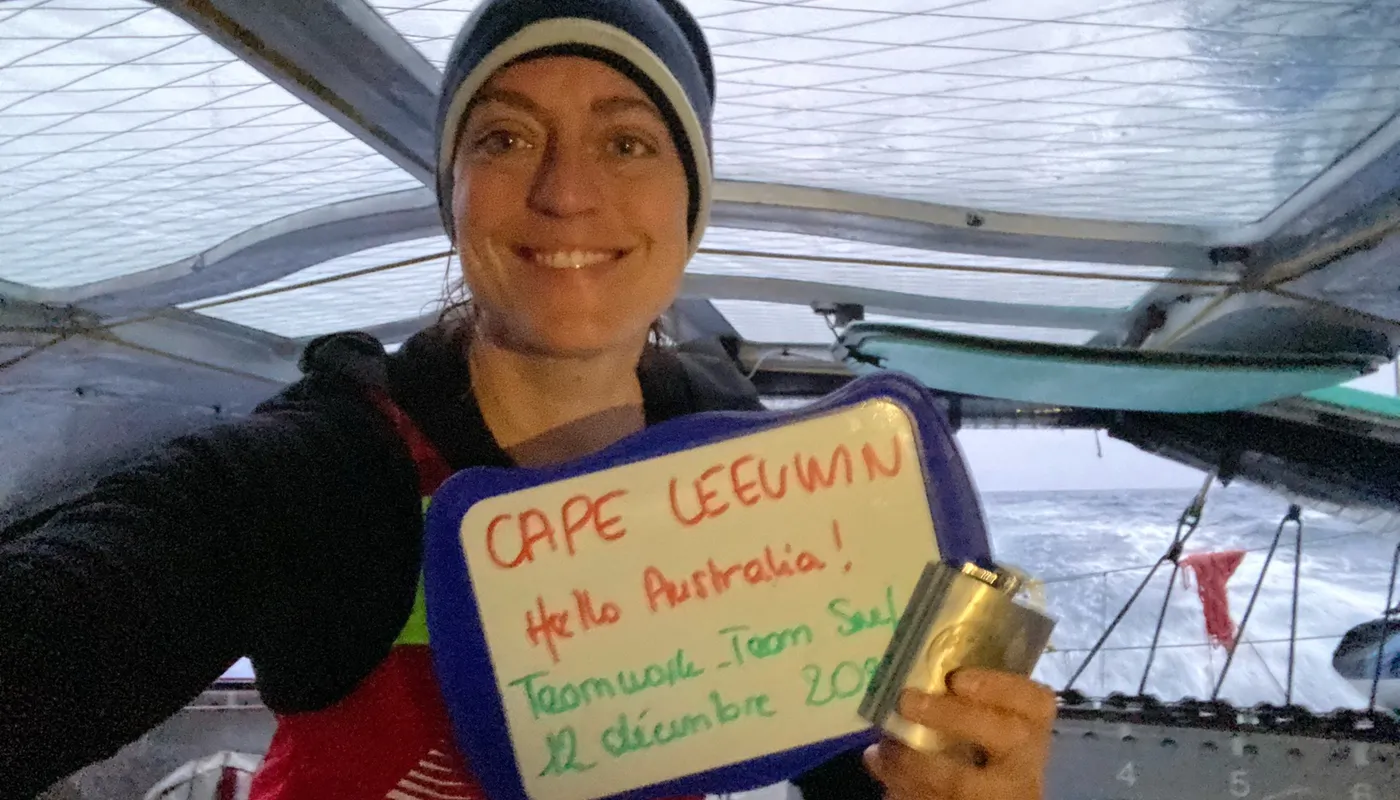 CAPE LEEUWIN
Hello Australia!
Teamwork - Team Snef
12 décembre 202
4
5
6